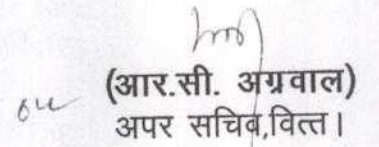 (आर.सी. अग्रवाल)
अपर सचिव,वित्त।